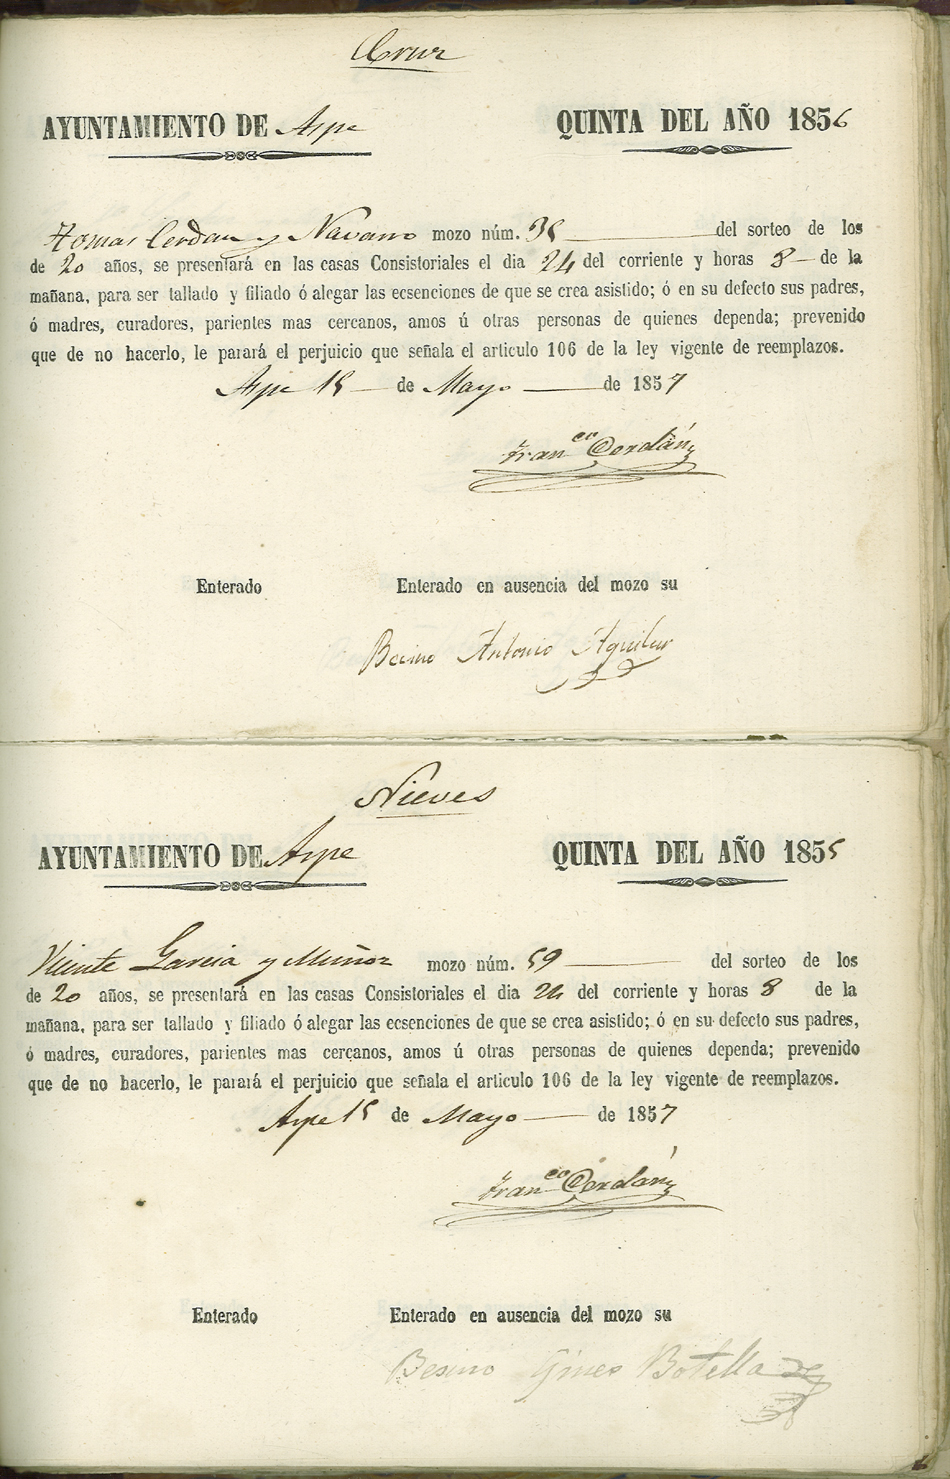 Cruz
AYUNTAMIENTO DE Aspe QUINTA DEL AÑO 1856
Tomas Cerdan y Navarro mozo núm. 35 del sorteo de los
de 20 años, se presentará en las casas Consistoriales el dia 24 del corriente y horas 8 de la
mañana, para ser tallado y filiado ó alegar las ecsenciones de que se crea asistido; ó en su defecto sus padres,
ó madres, curadores, parientes mas cercanos, amos ú otras personas de quienes dependa; prevenido
que de no hacerlo, le parará el perjuicio que señala el articulo 106 de la ley vigente de reemplazos.
Aspe 15 de Mayo de 1857
Franco Cerdán
Enterado Enterado en ausencia del mozo su
Becino Antonio Aguilar
Nieves
AYUNTAMIENTO DE Aspe QUINTA DEL AÑO 1855
Vicente Garcia y Muñoz mozo núm. 59 del sorteo de los
de 20 años, se presentará en las casas Consistoriales el dia 24 del corriente y horas 8 de la
mañana, para ser tallado y filiado ó alegar las ecsenciones de que se crea asistido; ó en su defecto sus padres,
ó madres, curadores, parientes mas cercanos, amos ú otras personas de quienes dependa; prevenido
que de no hacerlo, le parará el perjuicio que señala el articulo 106 de la ley vigente de reemplazos.
Aspe 15 de Mayo de 1857
Franco Cerdán
Enterado Enterado en ausencia del mozo su
Besino Gines Botella